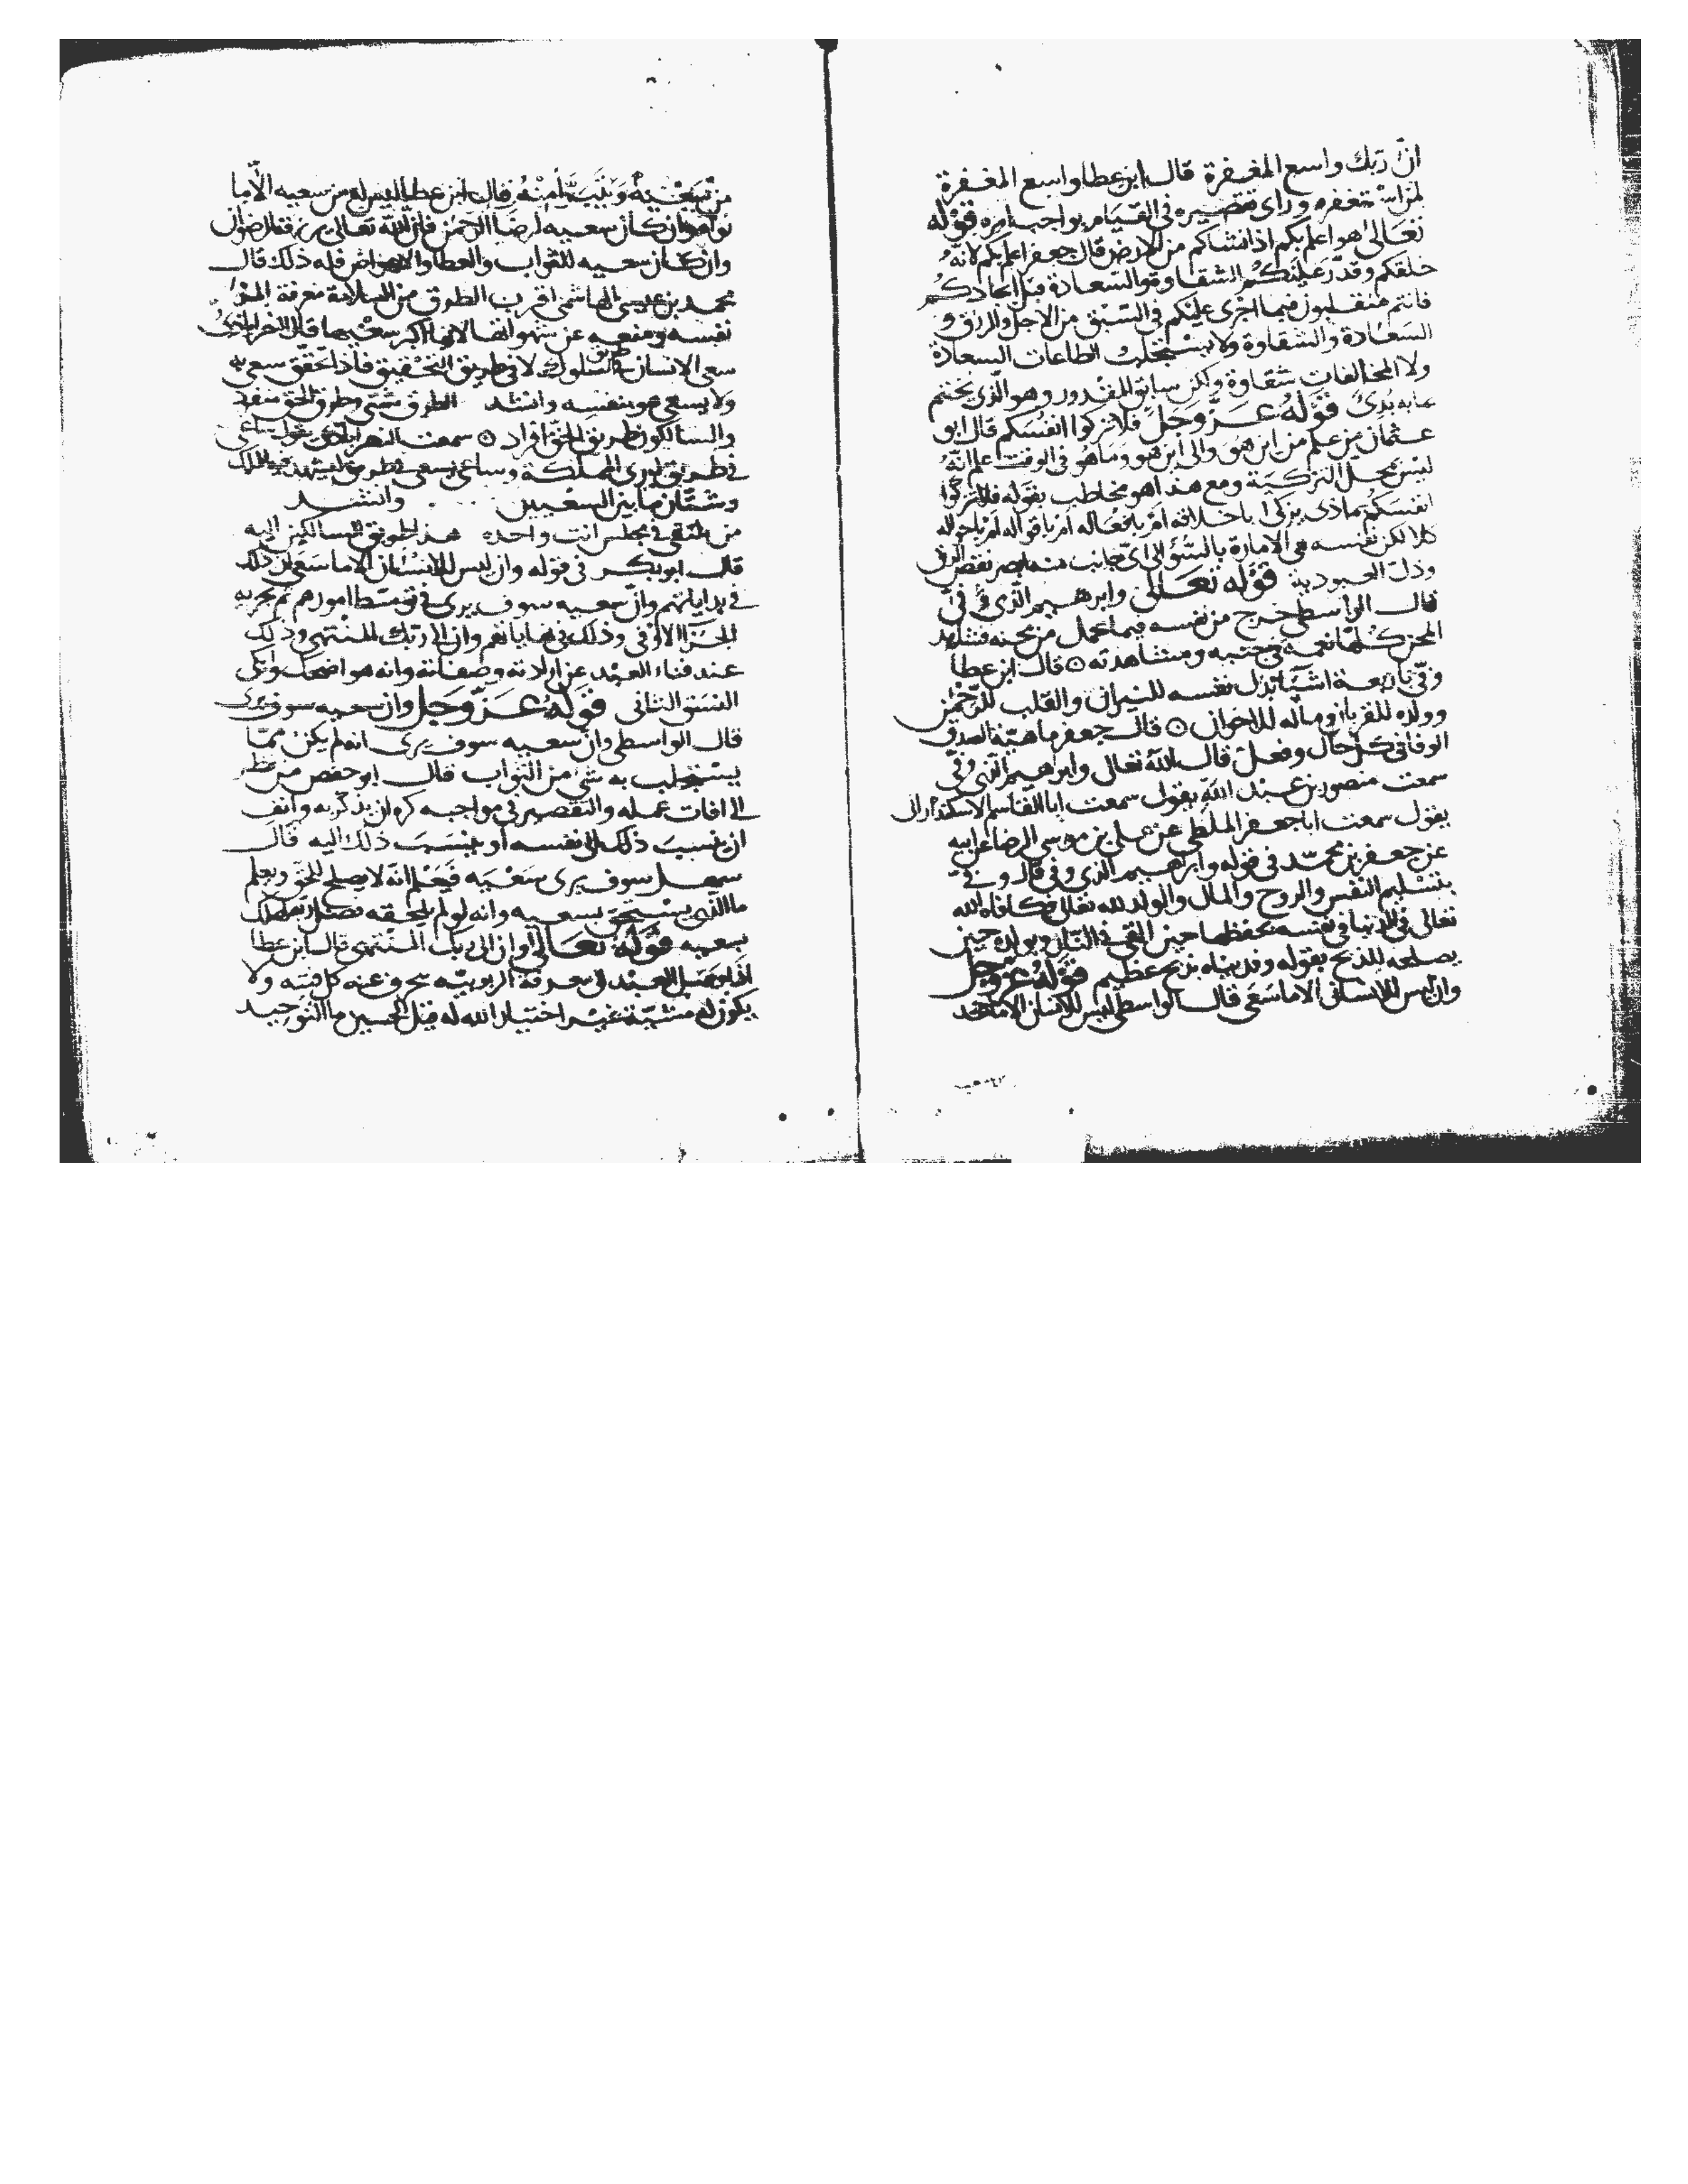 انّ ربّك واسع المغفرة قال ابن عطا واسع المغفرة
لمن استغفره وراى تقصيره فى القيام بواجب امره قوله
تعالى هو اعلم بكم اذ انشاكم من الارض قال جعفر اعلم بكم لانه
خلقكم وقدّر عليكم الشقاوة والسعادة قبل ايجادكم
فانتم متقلبون فيما اجرى عليكم فى السبق من الاجل والرزق و
السعادة والشقاوة ولا يستجلب الطاعات السعادة
ولا المخالفات شقاوة ولكن سابق المقدور وهو الذى يختم
بما به بدئ قوله عزّ وجلّ فلا تزكوا انفسكم قال ابو
عثمان من علم من اين هو والى اين هو وما هو فى الوقت اعلم انه
ليس بمحل التزكية ومع هذا هو مخاطب بقوله فلا تزكوا
انفسكم بماذى يزكى باخلاقه ام بافعاله ام باقواله ام باحواله
كلا لكن نفسه هى الامارة بالسّؤ الى اىّ جانب منه ابصر نقص الرق
وذل العبودية قوله تعالى وابرهيم الذى وفّى
قال الواسطى خرج من نفسه فيما عمل من محنه فشاهد
المحن كلها نعمة فى جنبه ومشاهدته ۞ قال ابن عطا
وفّى باربعة اشيآ بذل نفسه للنيران والقلب للرّحمن
وولده للقربان وماله للاخوان ۞ قال جعفر ماهيّة الصدق
الوفا فى كل حال وفعل قال الله تعالى وابرهيم الذى وفّى
سمعت منصور بن عبد الله يقول سمعت ابا القاسم الاسكندرانى
يقول سمعت ابا جعفر الملطى عن على بن موسى الرضا عن ابيه
عن جعفر بن محمّد فى قوله وابرهيم الذى وفى قال وفى
بتسليم النفس والروح والمال والولد لله تعالى فكافاه الله
تعالى فى الدنيا فى نفسه بحفظها حين القى فى النار وبولده حين
يصلحه للذبح بقوله وفديناه بذبح عظيم قوله عزّ وجلّ
وان ليس للانسان الا ما سَعَى قال الواسطى ليس للانسان الا ما
من سعيه قال ابن عطا ليس له من سعيه الّا ما
نواه ان كان سعيه لرضا الرحمن فان الله تعالى يرزقه الرضوان
وان كان سعيه للثواب والعطا والاعواض فله ذلك قال
محمد بن عيسى الهاشمى اقرب الطرق من السلامة معرفة
نفسه ومنعه عن شهواتها لانها اكبر سعيها قال
سعى الانسان فى طريق السلوك لا فى طريق التحقيق فاذا تحقق سعى به
ولا يسعى هو بنفسه وانشد الطرق شتى وطرق الحق منفرد
والسالكون طريق الحق افراد ۞ سمعت النصراباذى يقول ساعى
فى طريق يرى الهلكة وساعى يسعى فى طريق يشهد
وشتّان ما بين السعيين وانشد
من يلتقى فى مجلس انت واحده هذا طريق السالكين اليه
قال ابو بكر فى قوله وان ليس للانسان الا ما سَعَى ان ذلك
فى بداياتهم وانّ سعيه سوف يرى فى توسّط امورهم ثم يجزيه
الجزآ الاوفى وذلك فى نهاياتهم وان الى ربّك المنتهى وذلك
عند فناء العبد عن اراداته وصفاته وانه هو اضحك وابكى
قوله عزّ وجلّ وان سعيه سوف يرى
قال الواسطى وان سعيه سوف يرى انه لم يكن ممّا
يستجلب به شئ من الثواب قال ابو حفص من نظر
الى افات عمله والتقصير فى مواجبه كره ان يذكر به وانف
ان ينسب ذلك الى نفسه او ينسب ذلك اليه قال
سهل سوف يرى سعيه فيعلم انه لا يصلح للحق ويعلم
ما الذى يستحق بسعيه وانه لو لم يلحقه فضل ربه لهلك
بسعيه قوله تعالى وان الى ربك المنتهى قال ابن عطا
اذا وصل العبد الى معرفة الربوبيّة ينحرف عنه كل فتنه ولا
يكون له مشيّة غير اختيار الله له قيل للحسين ما التوحيد